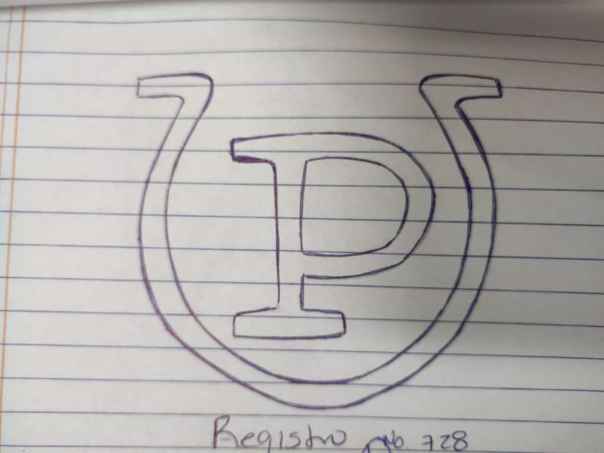 P
Registro No. 728